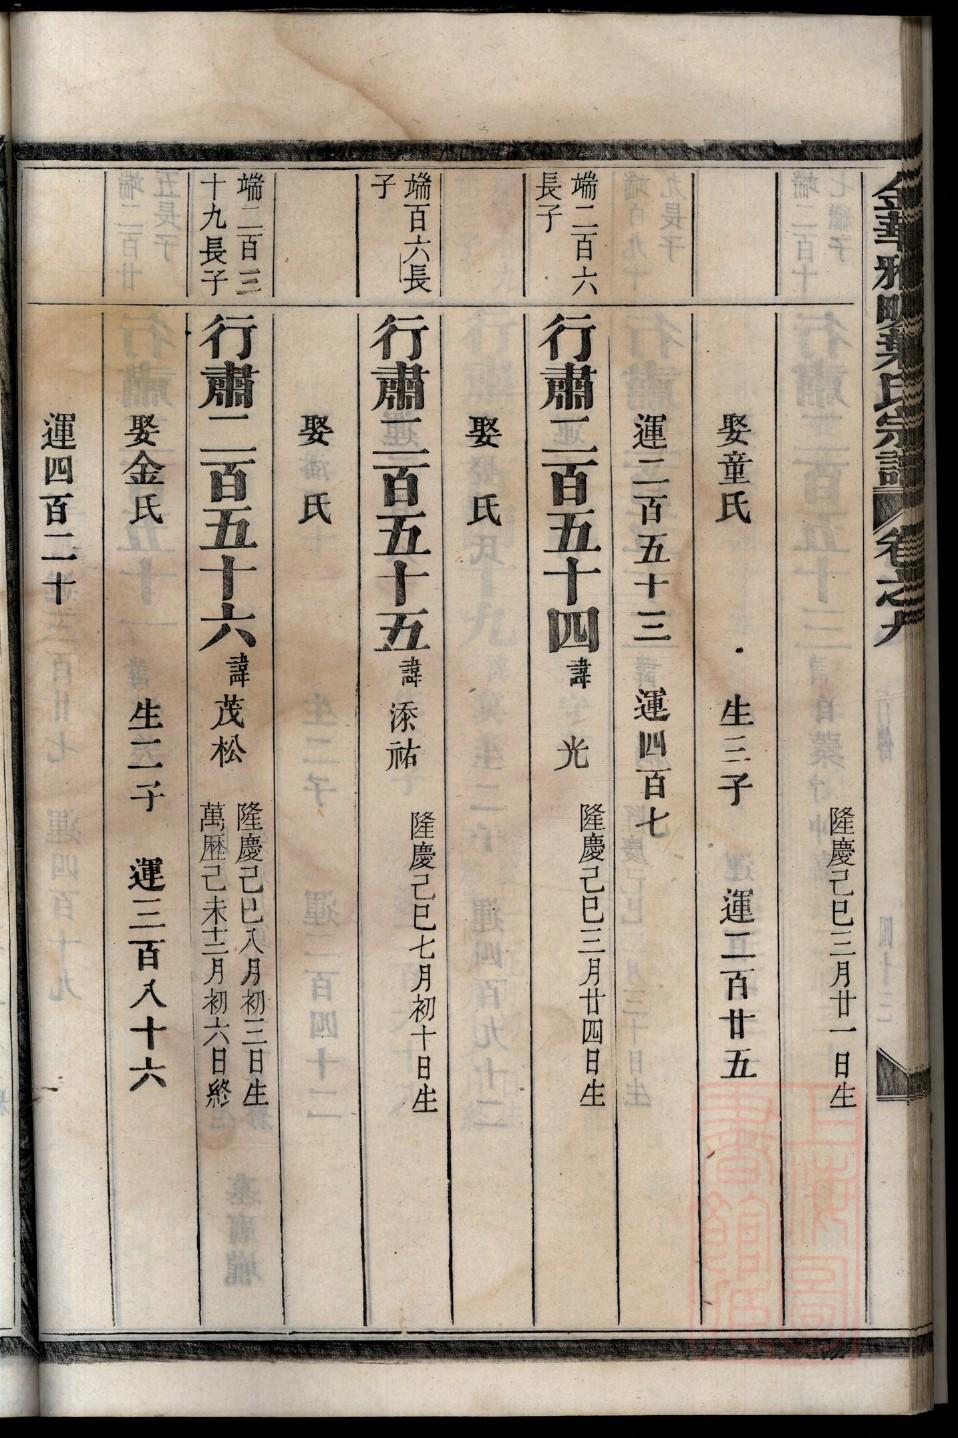 金華雅畈葉氏宗譜 卷之九
隆慶己巳三月廿一日生
娶童氏 生三子 運二百廿五
運二百五十三 運四百七
端二百六
長子
行肅二百五十四 諱光 隆慶己巳三月廿四日生
娶 氏
端百六長
子
行肅二百五十五 諱添祐 隆慶己巳七月初十日生
娶 氏
端二百三
十九長子
行肅二百五十六 諱茂松 隆慶己巳八月初三日生
萬歷己未十二月初六日終
娶金氏 生二子 運三百八十六
運四百二十